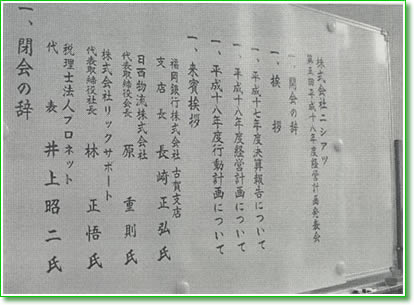 株式会社ニシアツ
第五期平成十八年度経営計画発表会
一、開会の辞
一、挨拶
一、平成十七年度決算報告について
一、平成十八年度経営計画について
一、平成十八年度行動計画について
一、来賓挨拶
福岡銀行株式会社 古賀支店
支店長 長崎正弘氏
日西物流株式会社
代表取締役会長 原重則氏
株式会社リックサポート
代表取締役社長 林正悟氏
税理士法人フロネット
代表 井上昭二氏
一、閉会の辞